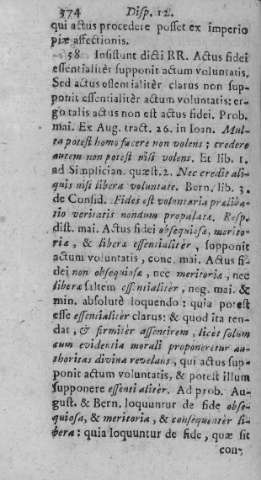 374 Disp. 12.
qui actus procedere posset ex imperio
piæ affectionis.
58. Insistunt dicti RR. Actus fidei
essentialitèr supponit actum voluntatis.
Sed actus essentialitèr clarus non sup-
ponit essentialitèr actum voluntatis: er-
go talis actus non est actus fidei. Prob.
mai. Ex Aug. tract. 26. in Ioan. Mul-
ta potest homo facere non volens; credere
autem non potest nisi volens. Et lib. 1.
ad Simplician. quæst. 2. Nec credit ali-
quis nisi libera voluntate. Bern. lib. 3.
de Consid. Fides est voluntaria præliba-
tio veritatis nondum propalatæ. Resp.
dist. mai. Actus fidei obsequiosa, merito-
ria, & libera essentialitèr, supponit
actum voluntatis, conc. mai. Actus fi-
dei non obsequiosa, nec meritoria, nec
libera saltem essentialitèr, neg. mai. &
min. absolutè loquendo: quia potest
esse essentialitèr clarus: & quod ita ten-
dat, & firmitèr assentirem, licèt solùm
cum evidentia morali proponeretur au-
thoritas divina revelans, qui actus sup-
ponit actum voluntatis, & potest illum
supponere essentialitèr. Ad prob. Au-
gust. & Bern. loquuntur de fide obse-
quiosa, & meritoria, & consequentèr li-
bera: quia loquuntur de fide, quæ sit
con-